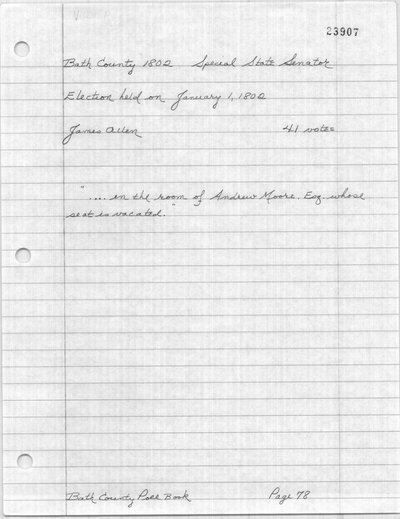 23907
Bath County 1802 Special State Senator
Election held on January 1, 1802
James Allen 41 votes
".... in the room of Andrew Moore, Esq. whose
seat is vacated."
Bath County Poll Book Page 78